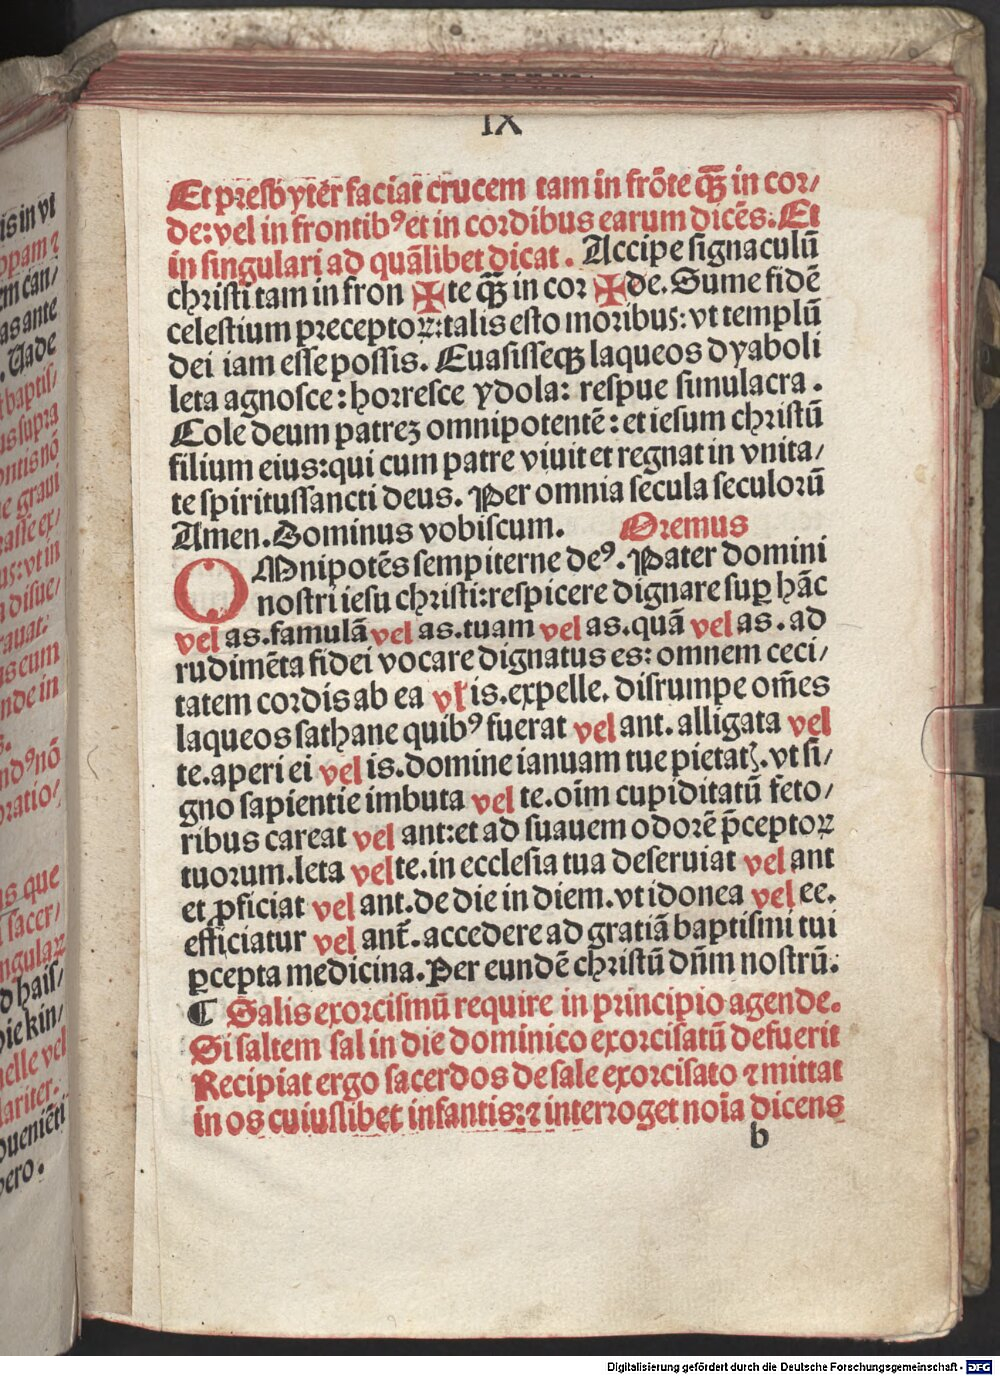 IX
Et presbyter faciat crucem tam in frōte qꝫ in cor/
de: vel in frontibꝰ et in cordibus earum dicēs. Et
in singulari ad quālibet dicat. Accipe signaculū
christi tam in fron ✠ te qꝫ in cor ✠ de. Sume fidē
celestium preceptoꝝ: talis esto moribus: vt templū
dei iam esse possis. Euasisseqꝫ laqueos dyaboli
leta agnosce: horresce ydola: respue simulacra.
Cole deum patreꝫ omnipotentē: et iesum christū
filium eius: qui cum patre viuit et regnat in vnita/
te spiritussancti deus. Per omnia secula seculorū
Amen. Dominus vobiscum. Oremus
OMnipotēs sempiterne deꝰ. Pater domini
nostri iesu christi: respicere dignare suꝑ hāc
vel as. famulā vel as. tuam vel as. quā vel as. ad
rudimēta fidei vocare dignatus es: omnem ceci/
tatem cordis ab ea vł is. expelle. disrumpe om̄es
laqueos sathane quibꝰ fuerat vel ant. alligata vel
te. aperi ei vel is. domine ianuam tue pietatꝭ. vt si/
gno sapientie imbuta vel te. oīm cupiditatū feto/
ribus careat vel ant: et ad suauem odorē p̄ceptoꝝ
tuorum. leta vel te. in ecclesia tua deseruiat vel ant
et ꝓficiat vel ant. de die in diem. vt idonea vel ee.
efficiatur vel ant̄. accedere ad gratiā baptismi tui
ꝑcepta medicina. Per eundē christū dn̄m nostrū.
¶ Salis exorcismū require in principio agende.
Si saltem sal in die dominico exorcisatū defuerit
Recipiat ergo sacerdos de sale exorcisato ⁊ mittat
in os cuiuslibet infantis: ⁊ interroget noīa dicens
b
is in vt
em can/
as ante
. Uade
baptis/
us supra
ontis nō
e graui
vt in
disue/
ns cum
nde in
ndꝰ nō
oratio/
as que
sacer/
ngulaꝝ
d hais/
pie kin/
elle vel
lariter.
oueniēti
vero.
Digitalisierung gefördert durch die Deutsche Forschungsgemeinschaft - DFG